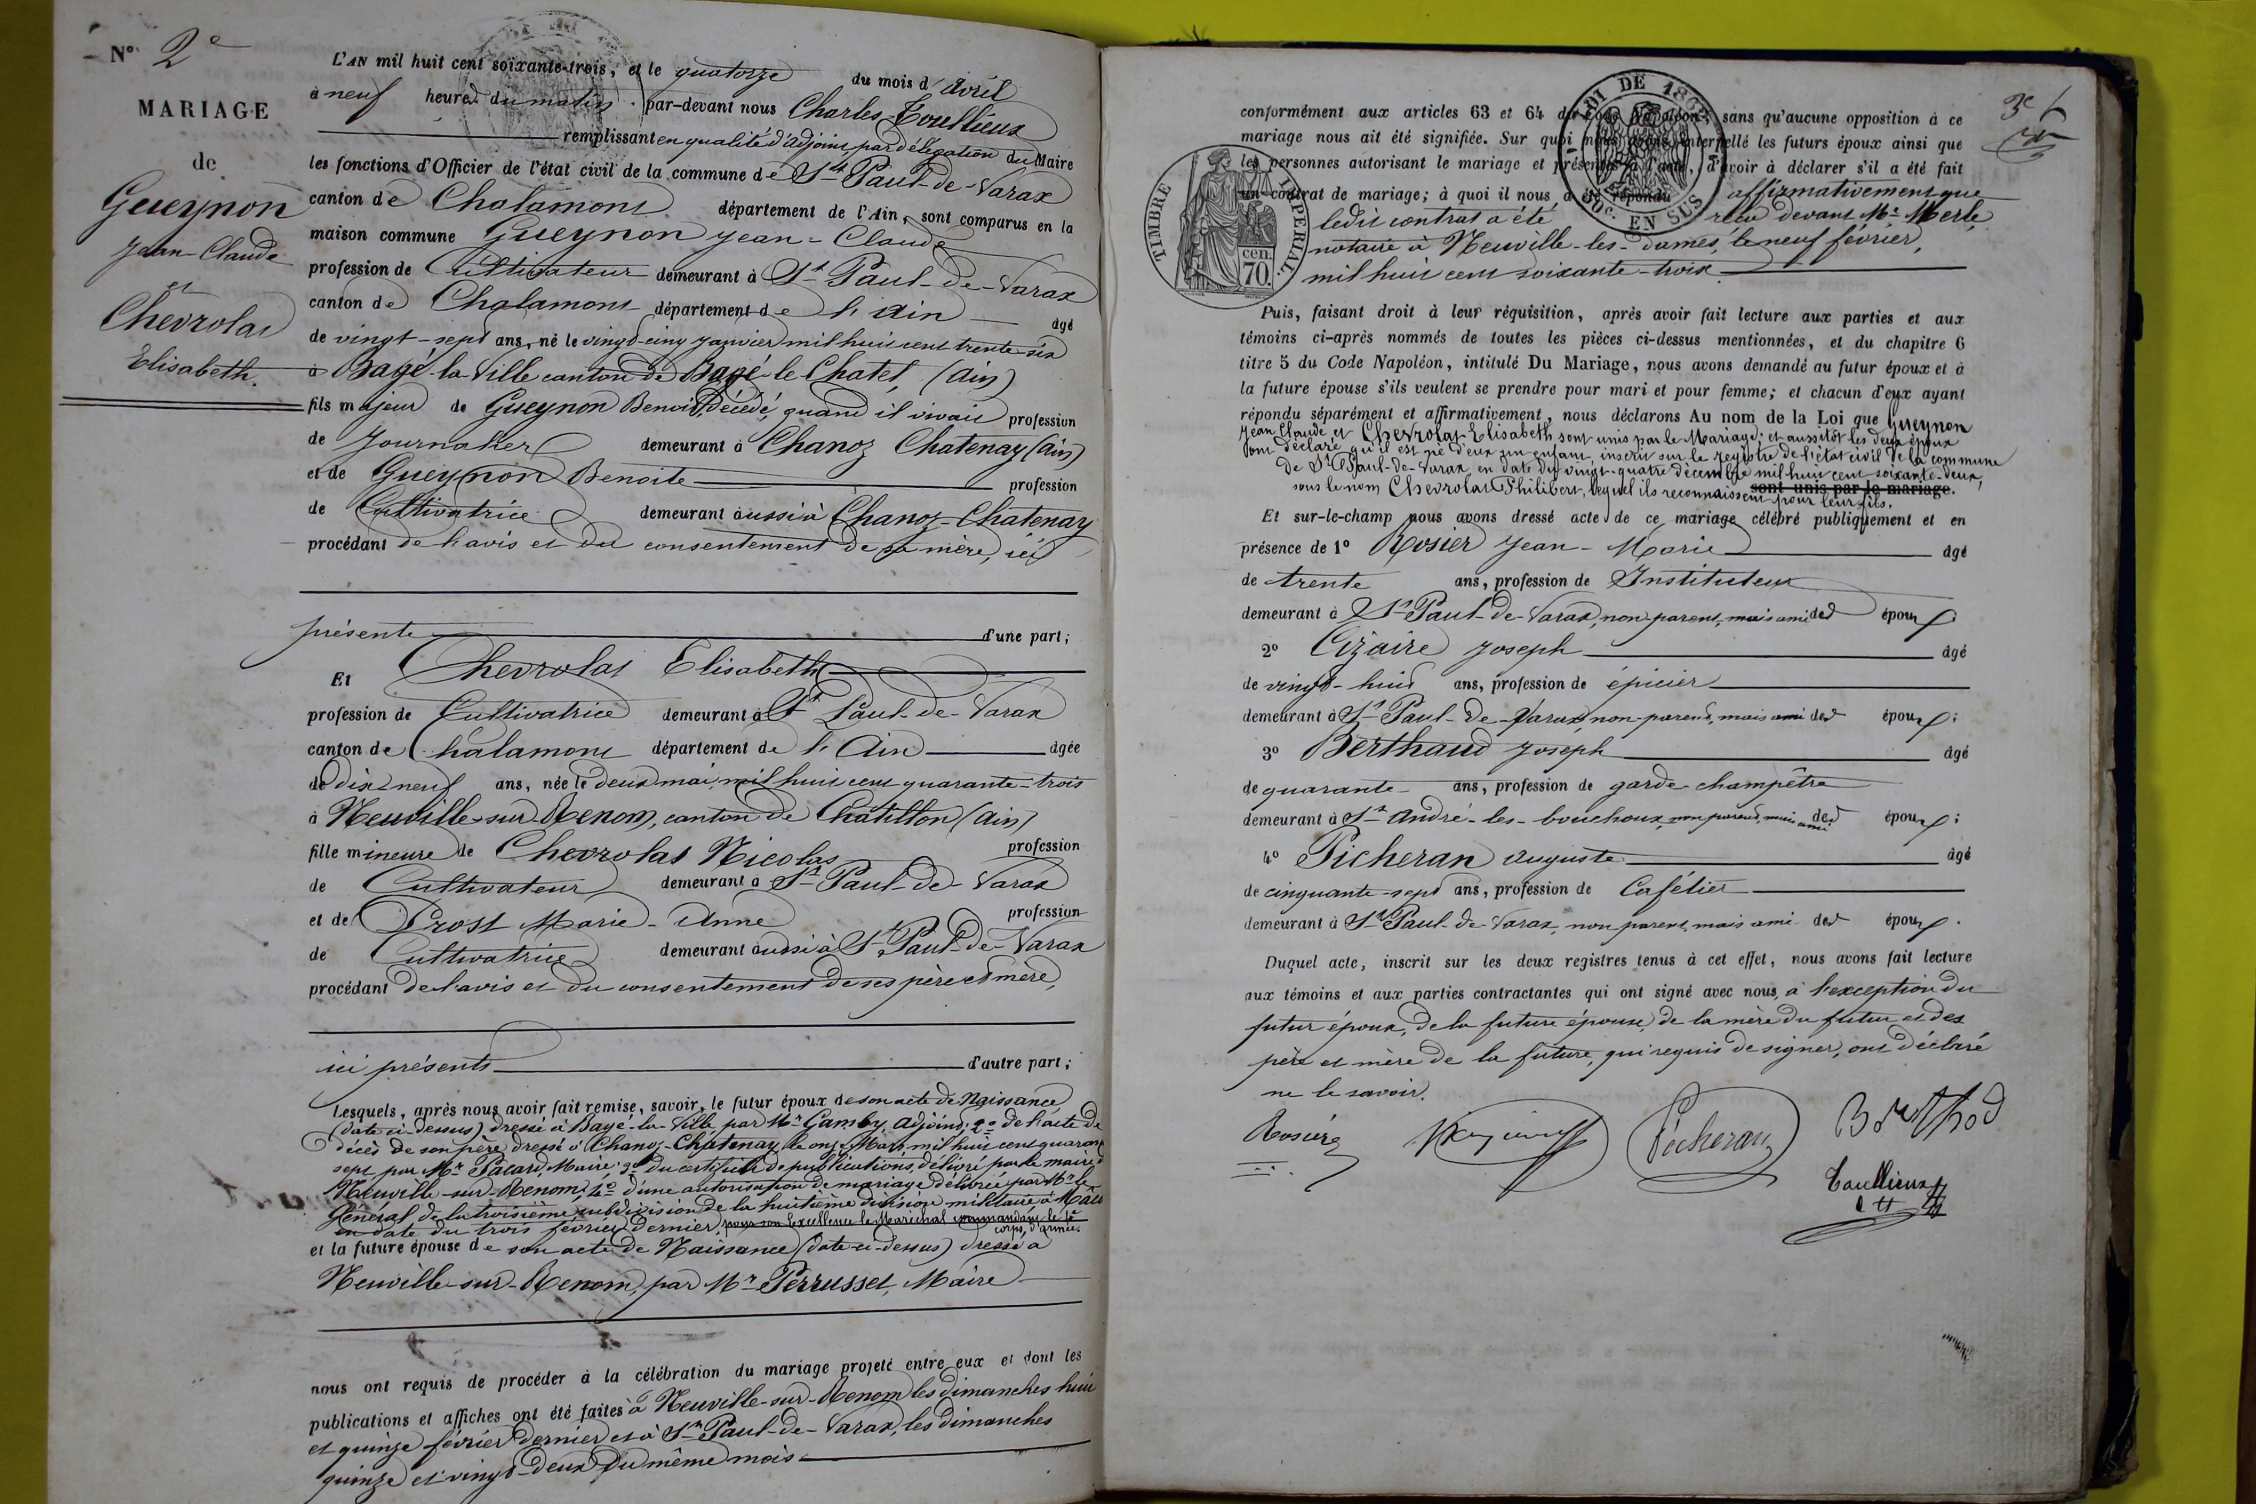 N° 2e
MARIAGE
de
Gueynon
Jean-Claude
et
Chevrolat
Elisabeth.
L'AN mil huit cent soixante-trois, et le quatorze du mois d'avril
à neuf heures du matin par-devant nous Charles Toullieux
remplissant en qualité d'adjoint, par délégation du Maire
les fonctions d'Officier de l'état civil de la commune de St Paul-de-Varax
canton de Chalamont département de l'Ain, sont comparus en la
maison commune Gueynon Jean-Claude
profession de Cultivateur demeurant à St Paul-de-Varax
canton de Chalamont département de l'Ain âgé
de vingt-sept ans, né le vingt-cinq janvier mil huit cent trente-six
à Bagé-la-Ville canton de Bagé-le-Chatel, (Ain)
fils majeur de Gueynon Benoit, décédé, quand il vivait profession
de Journalier demeurant à Chanoz Chatenay (Ain)
et de Gueynon Benoite profession
de Cultivatrice demeurant aussi à Chanoz-Chatenay
procédant de l'avis et du consentement de sa mère, ici
présente d'une part;
Et Chevrolat Elisabeth
profession de Cultivatrice demeurant à St Paul-de-Varax
canton de Chalamont département de l'Ain âgée
de dix-neuf ans, née le deux mai, mil huit cent quarante-trois
à Neuville-sur-Renom, canton de Chatillon (Ain)
fille mineure de Chevrolat Nicolas profession
de Cultivateur demeurant à St Paul-de-Varax
et de Prost Marie-Anne profession
de Cultivatrice demeurant aussi à St Paul-de-Varax
procédant de l'avis et du consentement de ses père et mère,
ici présents d'autre part;
Lesquels, après nous avoir fait remise, savoir, le futur époux de son acte de Naissance
(date ci-dessus) dressé à Bagé-la-Ville par Mr Gamby, adjoint; 2° de l'acte de
décès de son père dressé à Chanoz-Chatenay, le onze Mars, mil huit cent quarante
sept par Mr Pacard, Maire; 3° du certificat de publications, délivré par le maire d
Neuville-sur-Renom; 4° d'une autorisation de mariage délivrée par Mr le
Général de la troisième subdivision de la huitième division militaire à Mâcon
en date du trois février dernier, pour son Excellence le Maréchal commandant le 4e
corps d'armée.
et la future épouse de son acte de Naissance (date ci-dessus) dressé à
Neuville-sur-Renom, par Mr Perrusset, Maire
nous ont requis de procéder à la célébration du mariage projeté entre eux et dont les
publications et affiches ont été faites à Neuville-sur-Renom les dimanches huit
et quinze février dernier et à St Paul-de-Varax, les dimanches
quinze et vingt-deux du même mois
conformément aux articles 63 et 64 du Code Napoléon, sans qu'aucune opposition à ce
mariage nous ait été signifiée. Sur quoi nous avons interpellé les futurs époux ainsi que
les personnes autorisant le mariage et présentes à l'acte, d'avoir à déclarer s'il a été fait
un contrat de mariage; à quoi il nous a été répondu affirmativement que
ledit contrat a été reçu devant Mr Merle,
notaire à Neuville-les-dames, le neuf février,
mil huit cent soixante-trois
TIMBRE IMPERIAL.
cen.
70.
LOI DE 1862
2 Dc. EN SUS
Puis, faisant droit à leur réquisition, après avoir fait lecture aux parties et aux
témoins ci-après nommés de toutes les pièces ci-dessus mentionnées, et du chapitre 6
titre 5 du Code Napoléon, intitulé Du Mariage, nous avons demandé au futur époux et à
la future épouse s'ils veulent se prendre pour mari et pour femme; et chacun d'eux ayant
répondu séparément et affirmativement, nous déclarons Au nom de la Loi que Gueynon
Jean Claude et Chevrolat Elisabeth sont unis par le Mariage; et aussitôt les deux époux
ont déclaré qu'il est né d'eux un enfant, inscrit sur le registre de l'état civil de la commune
de St Paul-de-Varax, en date du vingt-quatre décembre mil huit cent soixante-deux,
sous le nom Chevrolat Philibert, lequel ils reconnaissent pour leur fils.
sont unis par le mariage.
Et sur-le-champ nous avons dressé acte de ce mariage célébré publiquement et en
présence de 1° Rosier Jean-Marie âgé
de trente ans, profession de Instituteur
demeurant à St Paul-de-Varax, non parent, mais ami des époux
2° Cizaire Joseph âgé
de vingt-huit ans, profession de épicier
demeurant à St Paul-de-Varax non-parent, mais ami des époux;
3° Berthaud Joseph âgé
de quarante ans, profession de garde-champêtre
demeurant à St André-les-bouchoux, non parent, mais ami des époux;
4° Picheran Auguste âgé
de cinquante-sept ans, profession de Cafétier
demeurant à St Paul-de-Varax non parent, mais ami des époux.
Duquel acte, inscrit sur les deux registres tenus à cet effet, nous avons fait lecture
aux témoins et aux parties contractantes qui ont signé avec nous, à l'exception du
futur époux, de la future épouse, de la mère du futur et des
père et mère de la future, qui requis de signer, ont déclaré
ne le savoir.
Rosier
Pécheran
Berthod
Toullieux